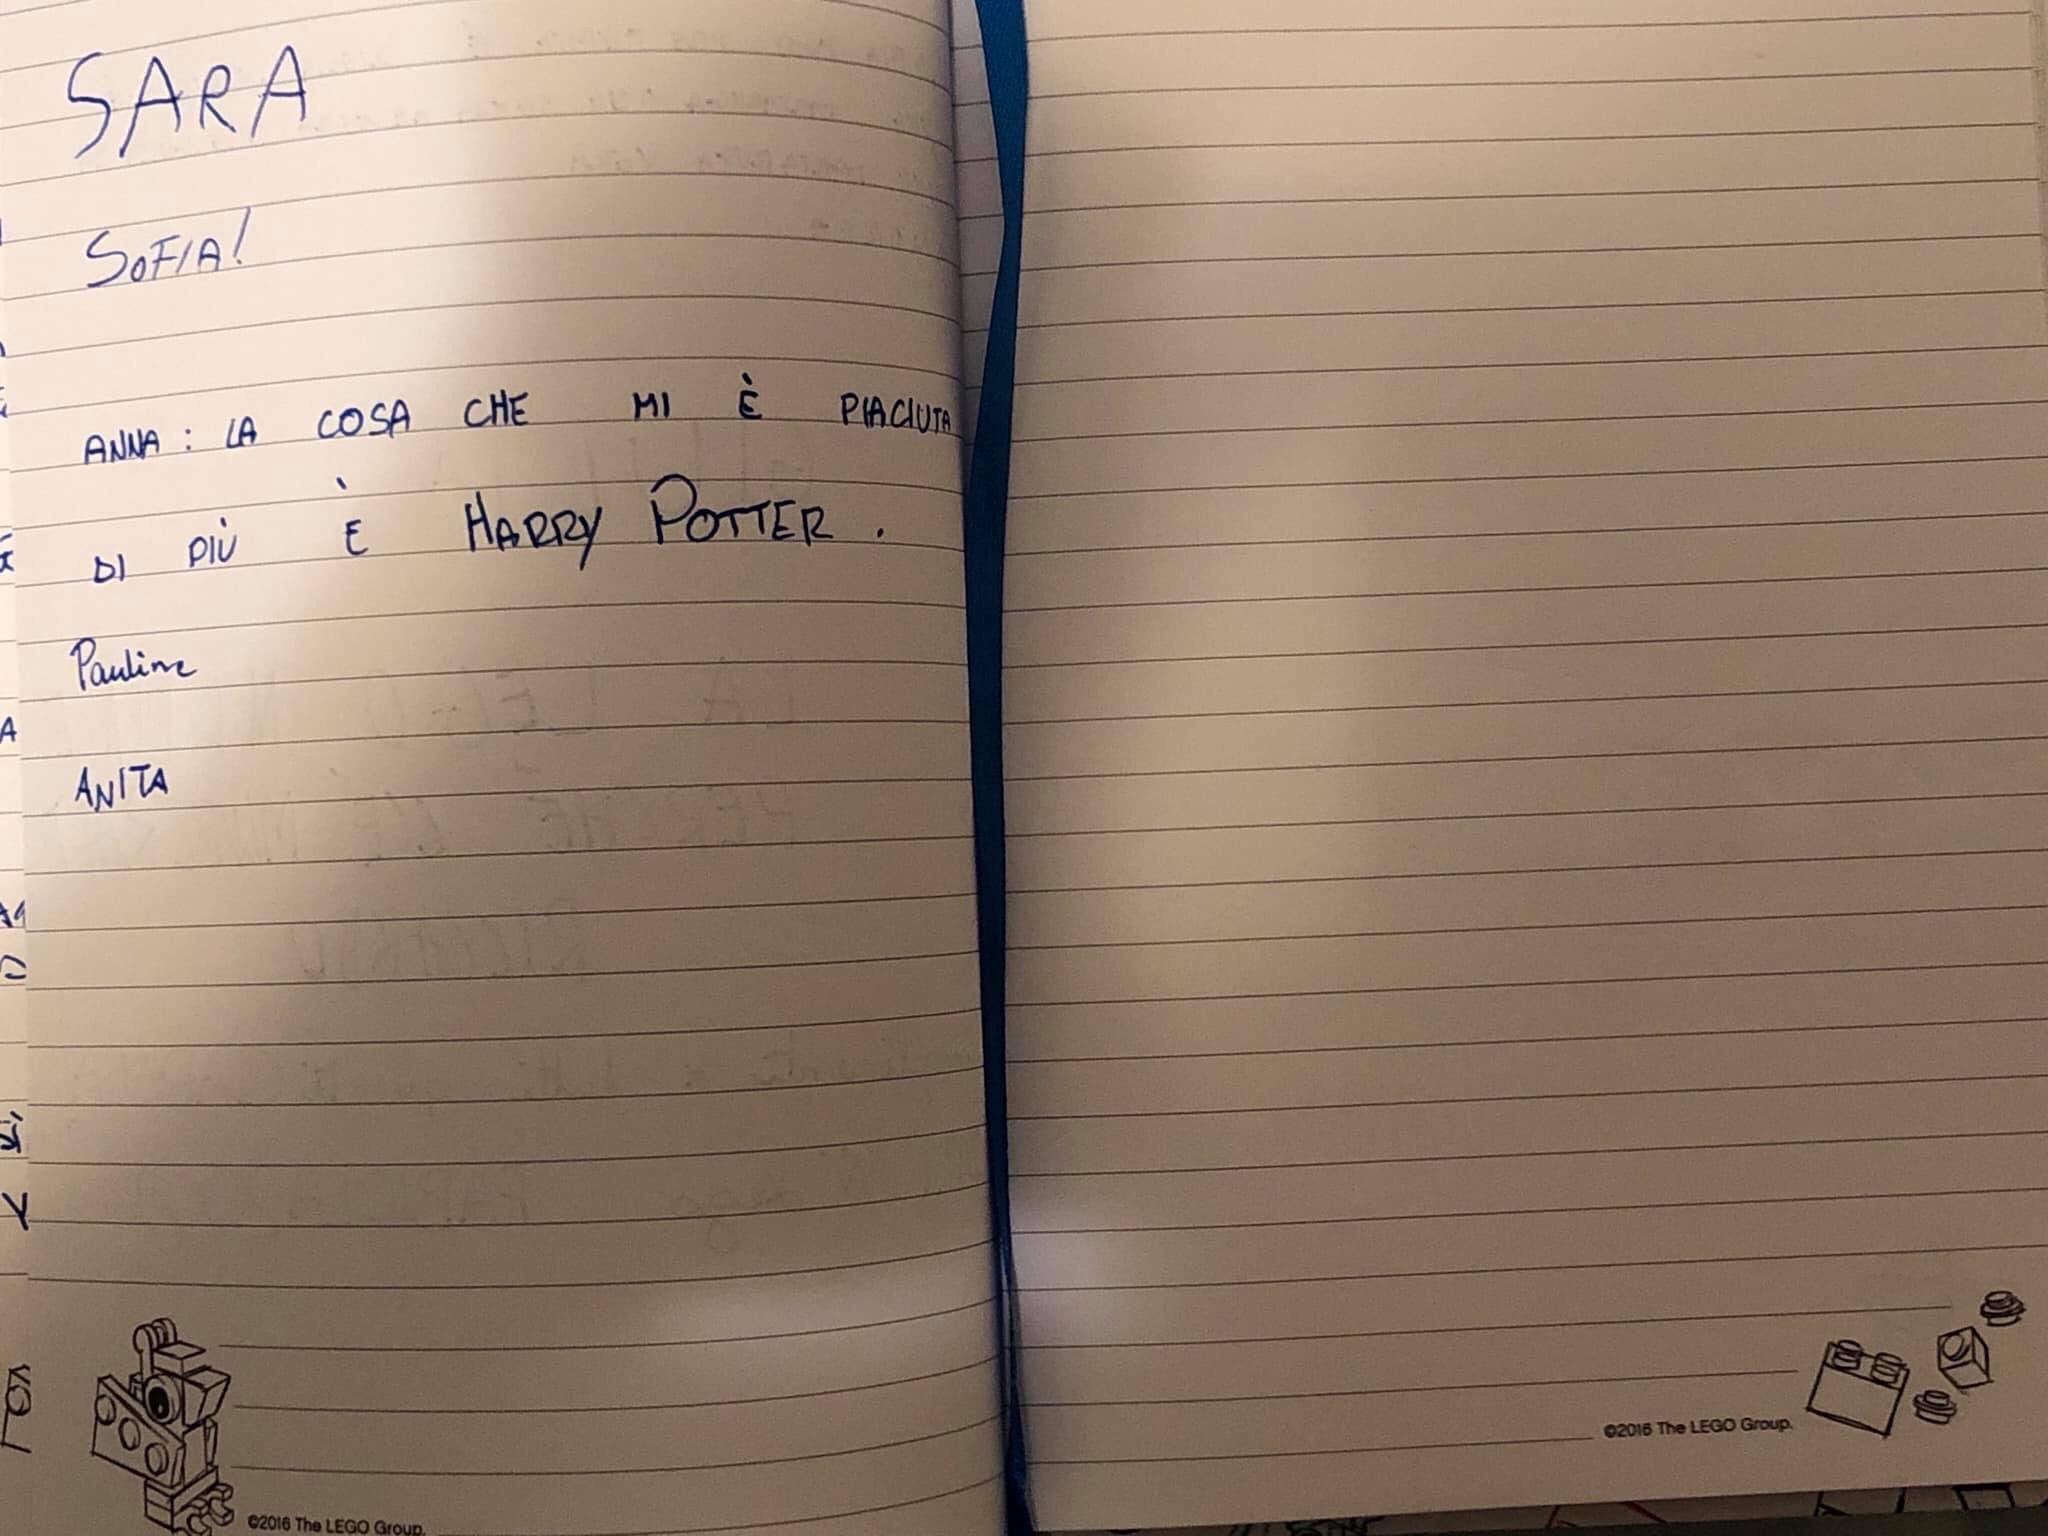 SARA
SOFIA!
ANNA: LA COSA CHE MI È PIACIUTA
DI PIÙ È HARRY POTTER.
Pauline
ANITA
©2016 The LEGO Group.
©2016 The LEGO Group.